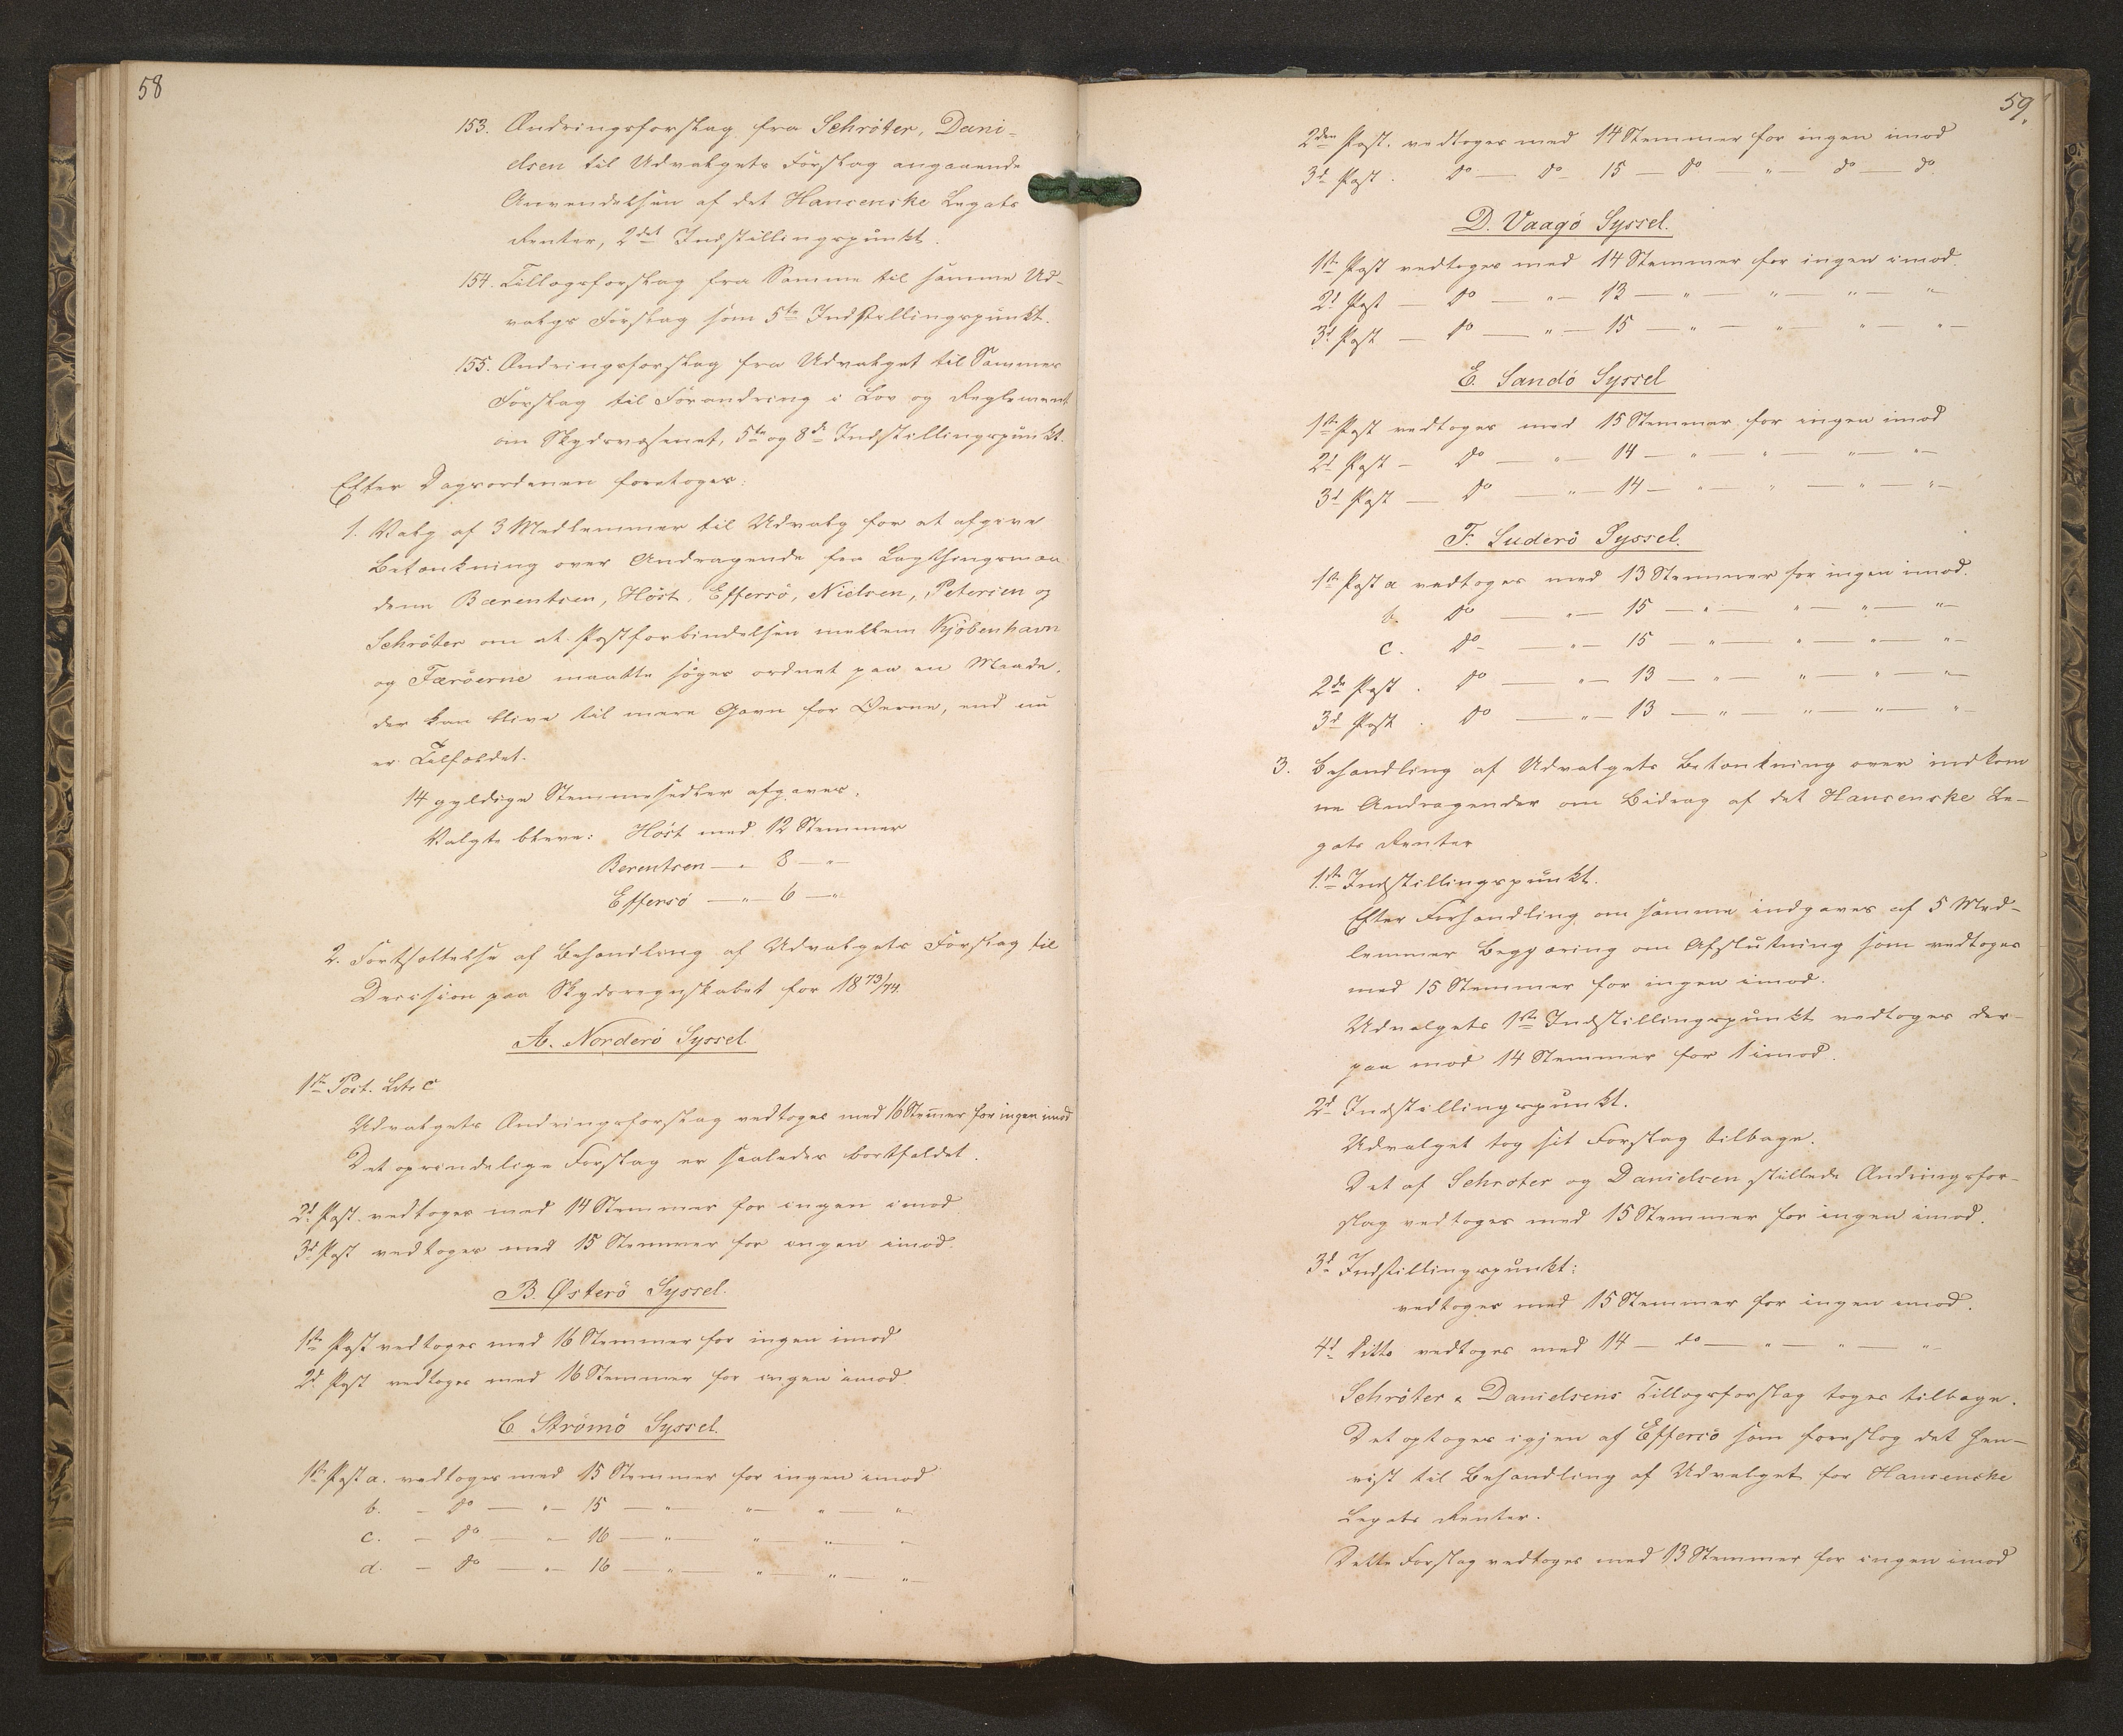 58
153. Ændringsforslag fra Schröter, Dani-
elsen til Udvalgets Forslag angaaende
Anvendelsen af det Hansenske Legats
Renter, 2det Indstillingspunkt.
154. Tillægsforslag fra Samme til samme Ud-
valgs Forslag som 5te Indstillingspunkt.
155. Ændringsforslag fra Udvalget til Sammes
Forslag til Forandring i Lov og Reglement
om Skydsvæsenet, 5te og 8de Indstillingspunkt.
Efter Dagsordenen foretoges:
1. Valg af 3 Medlemmer til Udvalg for at afgive
Betænkning over Andragende fra Lagthingsmæn
dene Bærentsen, Höst, Effersö, Nielsen, Petersen og
Schröter om at Postforbindelsen mellem Kjöbenhavn
og Færöerne maatte söges ordnet paa en Maade,
der kan blive til mere Gavn for Øerne, end nu
er Tilfældet.
14 gyldige Stemmesedler afgaves.
Valgte bleve: Höst med 12 Stemmer
Berentsen — " 8 — "
Effersö — " — 6 — "
2. Fortsættelse af Behandling af Udvalgets Forslag til
Decision paa Skydsregnskabet for 1873/74.
A. Norderö Syssel.
1ste Post. Litr. c
Udvalgets Ændringsforslag vedtoges med 16 Stemmer for ingen imod
Det oprindelige Forslag er saaledes bortfaldet.
2d. Post. vedtoges med 14 Stemmer for ingen imod
3d Post vedtoges med 15 Stemmer for ingen imod.
B. Østerö Syssel.
1ste Post vedtoges med 16 Stemmer for ingen imod
2d. Post vedtoges med 16 Stemmer for ingen imod.
C. Strömö Syssel.
1ste Post a. vedtoges med 15 Stemmer for ingen imod
b. — do — " — 15 — " — " — " — "
c. — do — " — 16 — " — " — " — "
d. — do — " — 16 — " — " — " — "
59.
2den Post. vedtoges med 14 Stemmer for ingen imod
3d. Post. do — do 15 — do — " do — do
D. Vaagö Syssel.
1ste Post vedtoges med 14 Stemmer for ingen imod.
2d Post — do — " — 13 — " — " — " — "
3d. Post — do — " — 15 — " — " — " — "
E. Sandö Syssel
1ste Post vedtoges med 15 Stemmer for ingen imod
2d Post — do — " — 14 — " — " — " — "
3d Post — do — " — 14 — " — " — " — "
F. Suderö Syssel.
1ste Post a vedtoges med 13 Stemmer for ingen imod.
b. do — " — 15 — " — " — " — "
c. do — " — 15 — " — " — " — "
2de Post. do — " — 13 — " — " — " — "
3d Post. do — " — 13 — " — " — " — "
3. Behandling af Udvalgets Betænkning over indkom
ne Andragender om Bidrag af det Hansenske Le-
gats Renter
1ste Indstillingspunkt.
Efter Forhandling om samme indgaves af 5 Med-
lemmer Begjæring om Afslutning som vedtoges
med 15 Stemmer for ingen imod.
Udvalgets 1ste Indstillingspunkt vedtoges der-
paa mod 14 Stemmer for 1 imod.
2d Indstillingspunkt.
Udvalget tog sit Forslag tilbage.
Det af Schroter og Danielsen stillede Ændringsfor-
slag vedtoges med 15 Stemmer for ingen imod.
3d Indstillingspunkt:
vedtoges med 15 Stemmer for ingen imod.
4d Ditto vedtoges med 14 — do — " — " — "
Schröter & Danielsens Tillægsforslag toges tilbage.
Det optoges igjen af Effersö som foreslog det hen-
vist til Behandling af Udvalget for Hansenske
Legats Renter.
Dette Forslag vedtoges med 13 Stemmer for ingen imod